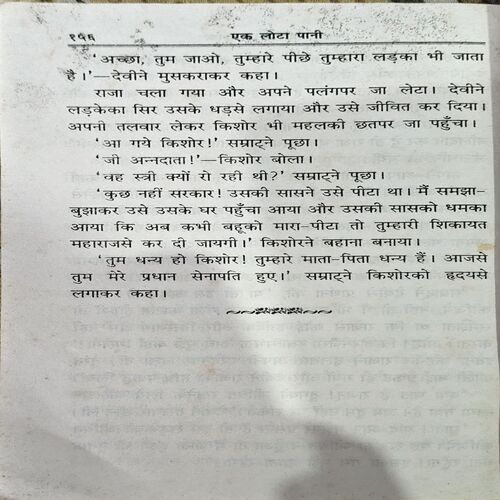 १५६ एक लोटा पानी
'अच्छा, तुम जाओ, तुम्हारे पीछे तुम्हारा लड़का भी जाता
है।'—देवीने मुसकराकर कहा।
राजा चला गया और अपने पलंगपर जा लेटा। देवीने
लड़केका सिर उसके धड़से लगाया और उसे जीवित कर दिया।
अपनी तलवार लेकर किशोर भी महलकी छतपर जा पहुँचा।
'आ गये किशोर!' सम्राट्ने पूछा।
'जी अन्नदाता!'—किशोर बोला।
'वह स्त्री क्यों रो रही थी?' सम्राट्ने पूछा।
'कुछ नहीं सरकार! उसकी सासने उसे पीटा था। मैं समझा-
बुझाकर उसे उसके घर पहुँचा आया और उसकी सासको धमका
आया कि अब कभी बहूको मारा-पीटा तो तुम्हारी शिकायत
महाराजसे कर दी जायगी।' किशोरने बहाना बनाया।
'तुम धन्य हो किशोर! तुम्हारे माता-पिता धन्य हैं। आजसे
तुम मेरे प्रधान सेनापति हुए।' सम्राट्ने किशोरको हृदयसे
लगाकर कहा।